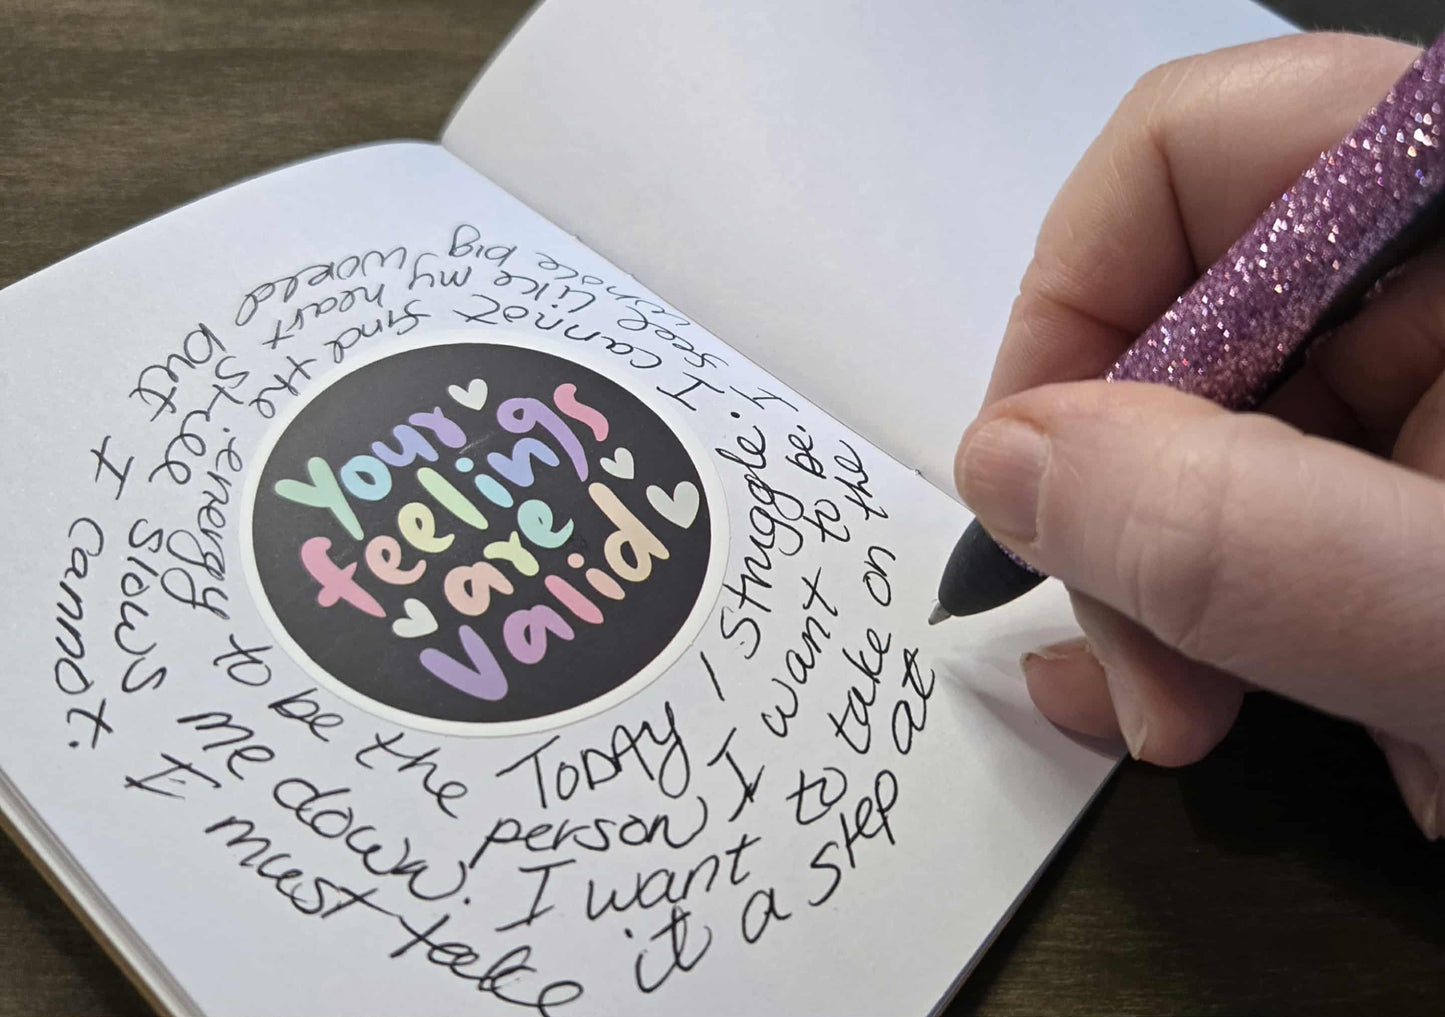 Your
feelings
are
valid
TODAY I struggle. I cannot find the energy to be the
person I want to be. I feel like my heart stree slows me down.
I want to take on the whole big world but I cannot. I must take
it a step at